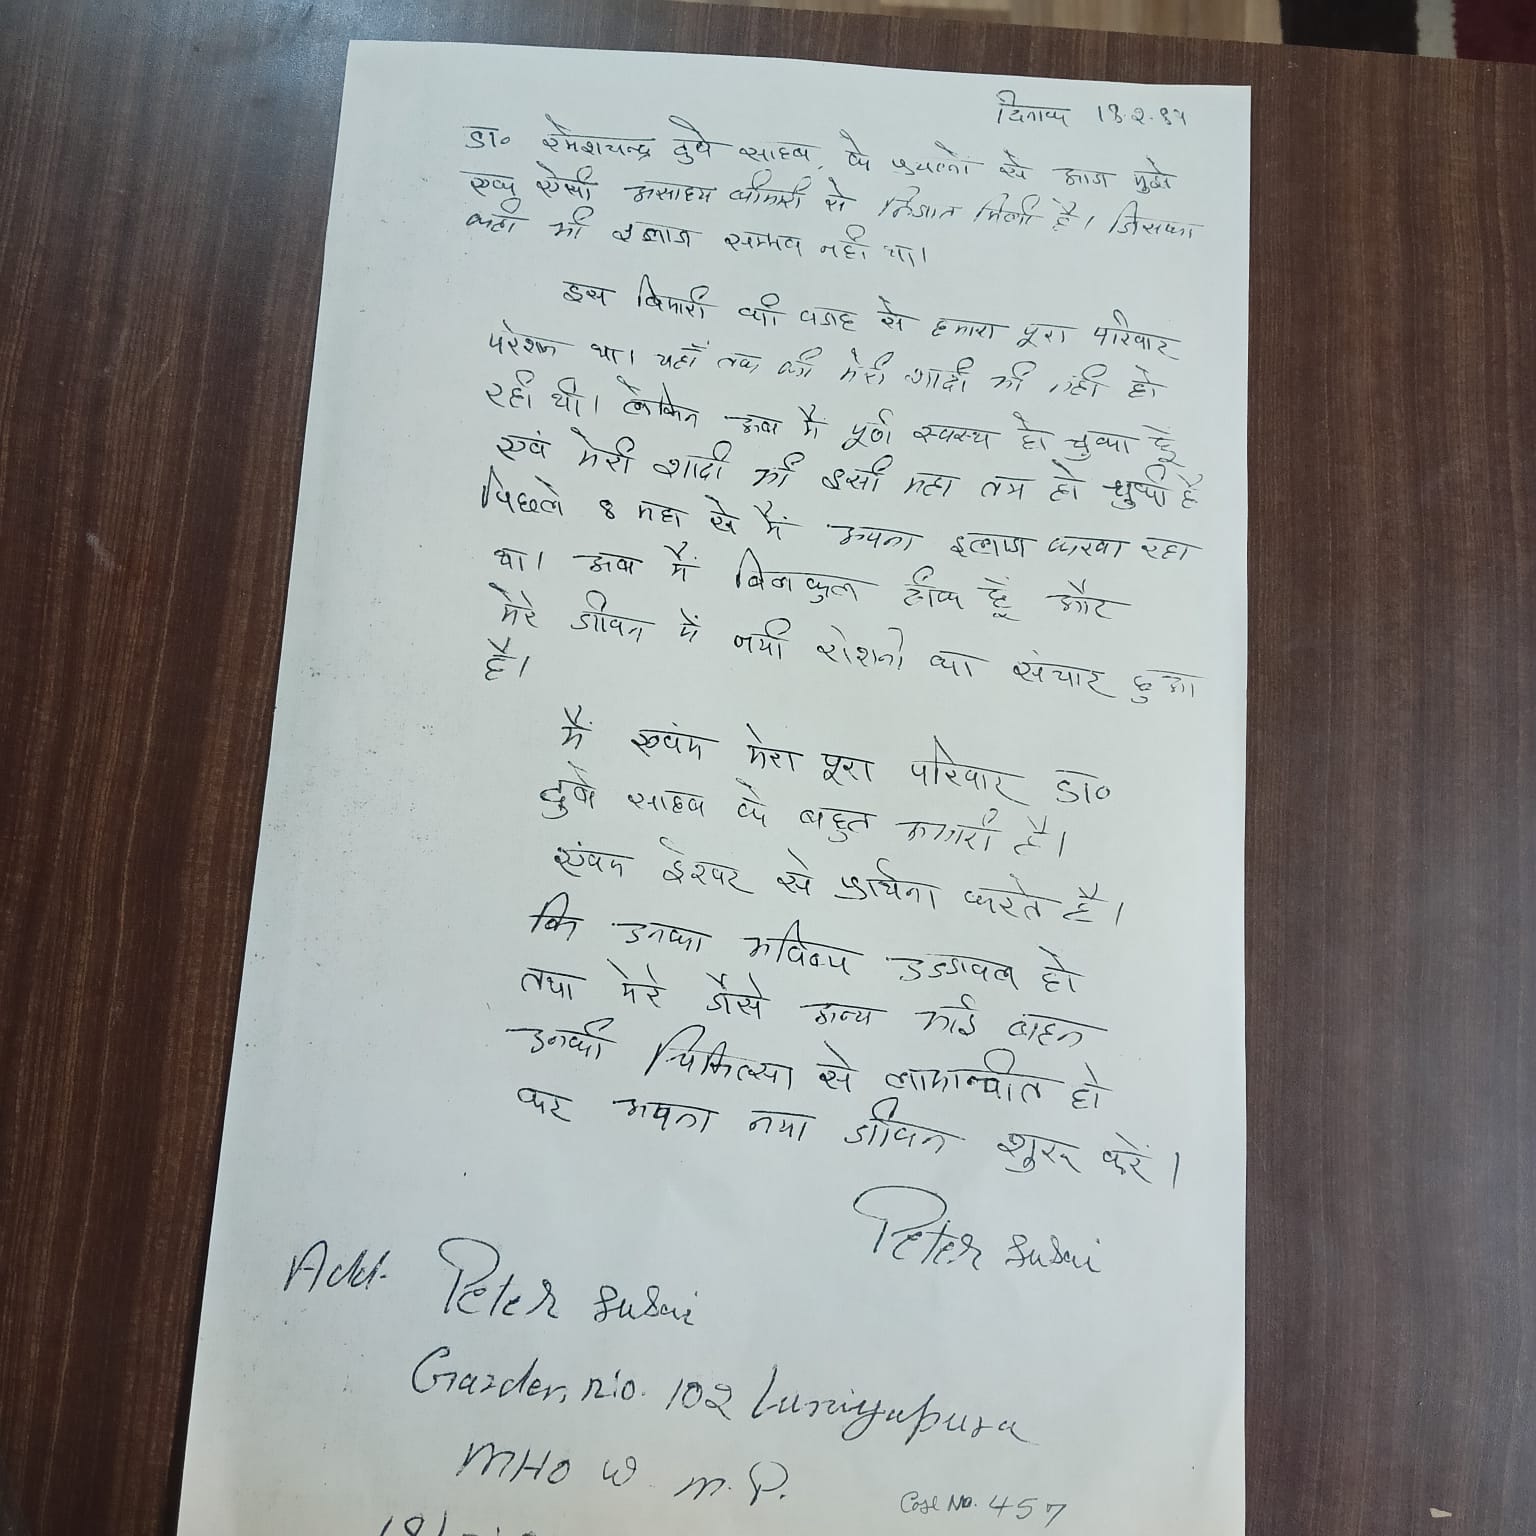 दिनांक 18.2.97
डा० रमेशचन्द्र दुबे साहब, के प्रयत्नों से आज मुझे
एक ऐसी असाध्य बीमारी से निजात मिली है। जिसका
कहीं भी इलाज सम्भव नहीं था।
इस बिमारी की वजह से हमारा पूरा परिवार
परेशान था। यहाँ तक की मेरी शादी भी नहीं हो
रही थी। लेकिन अब मैं पूर्ण स्वस्थ हो चुका हूँ
एवं मेरी शादी भी इसी महा तय हो चुकी है
पिछले 8 महा से मैं अपना इलाज करवा रहा
था। अब मैं बिलकुल ठीक हूँ और
मेरे जीवन में नयी रोशनी का संचार हुआ
है।
मैं एवंम मेरा पूरा परिवार डा०
दुबे साहब के बहुत अभारी है।
एंवम ईश्वर से प्रार्थना करते है।
कि उनका भविष्य उज्जवल हो
तथा मेरे जैसे अन्य भाई बहन
उनकी चिकित्सा से लाभान्वीत हो
कर अपना नया जीवन शुरू करें।
Peter Susai
Add. Peter Susai
Garden, No. 102 Luniyapura
MHOW M.P.
Case No. 457